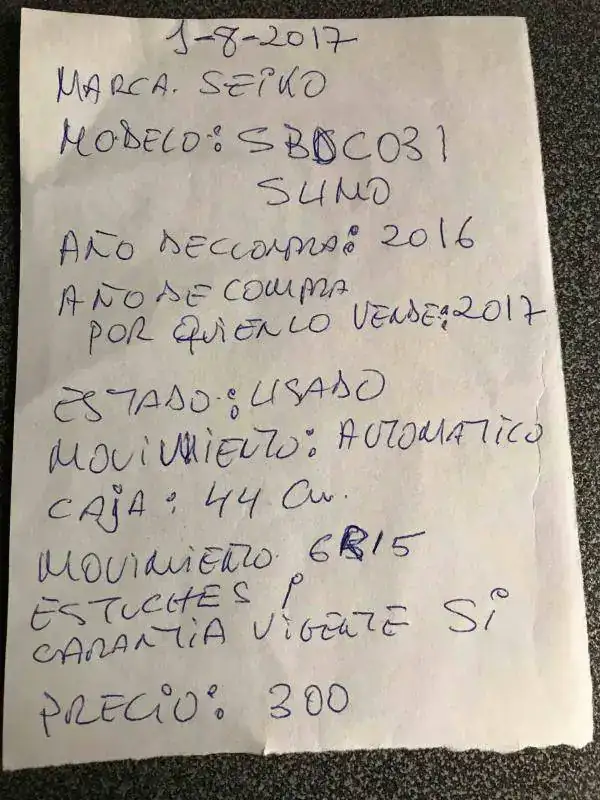 1-8-2017
MARCA. SEIKO
MODELO: SBDC031
SUMO
AÑO DE COMPRA: 2016
AÑO DE COMPRA
POR QUIEN LO VENDE: 2017
ESTADO: USADO
MOVIMIENTO: AUTOMATICO
CAJA: 44 Cm.
MOVIMIENTO 6R15
ESTUCHES Y
GARANTIA VIGENTE SI
PRECIO: 300